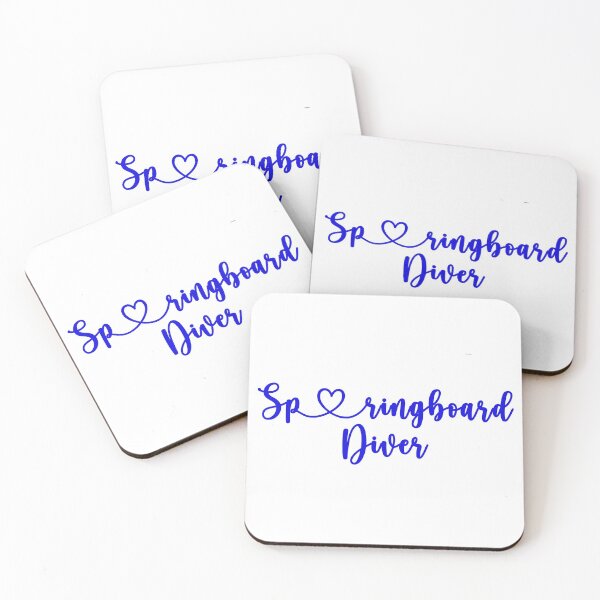 Sp♡ringboa
Sp♡ringboard
Diver
Sp♡ringboard
Diver
Sp♡ringboard
Diver